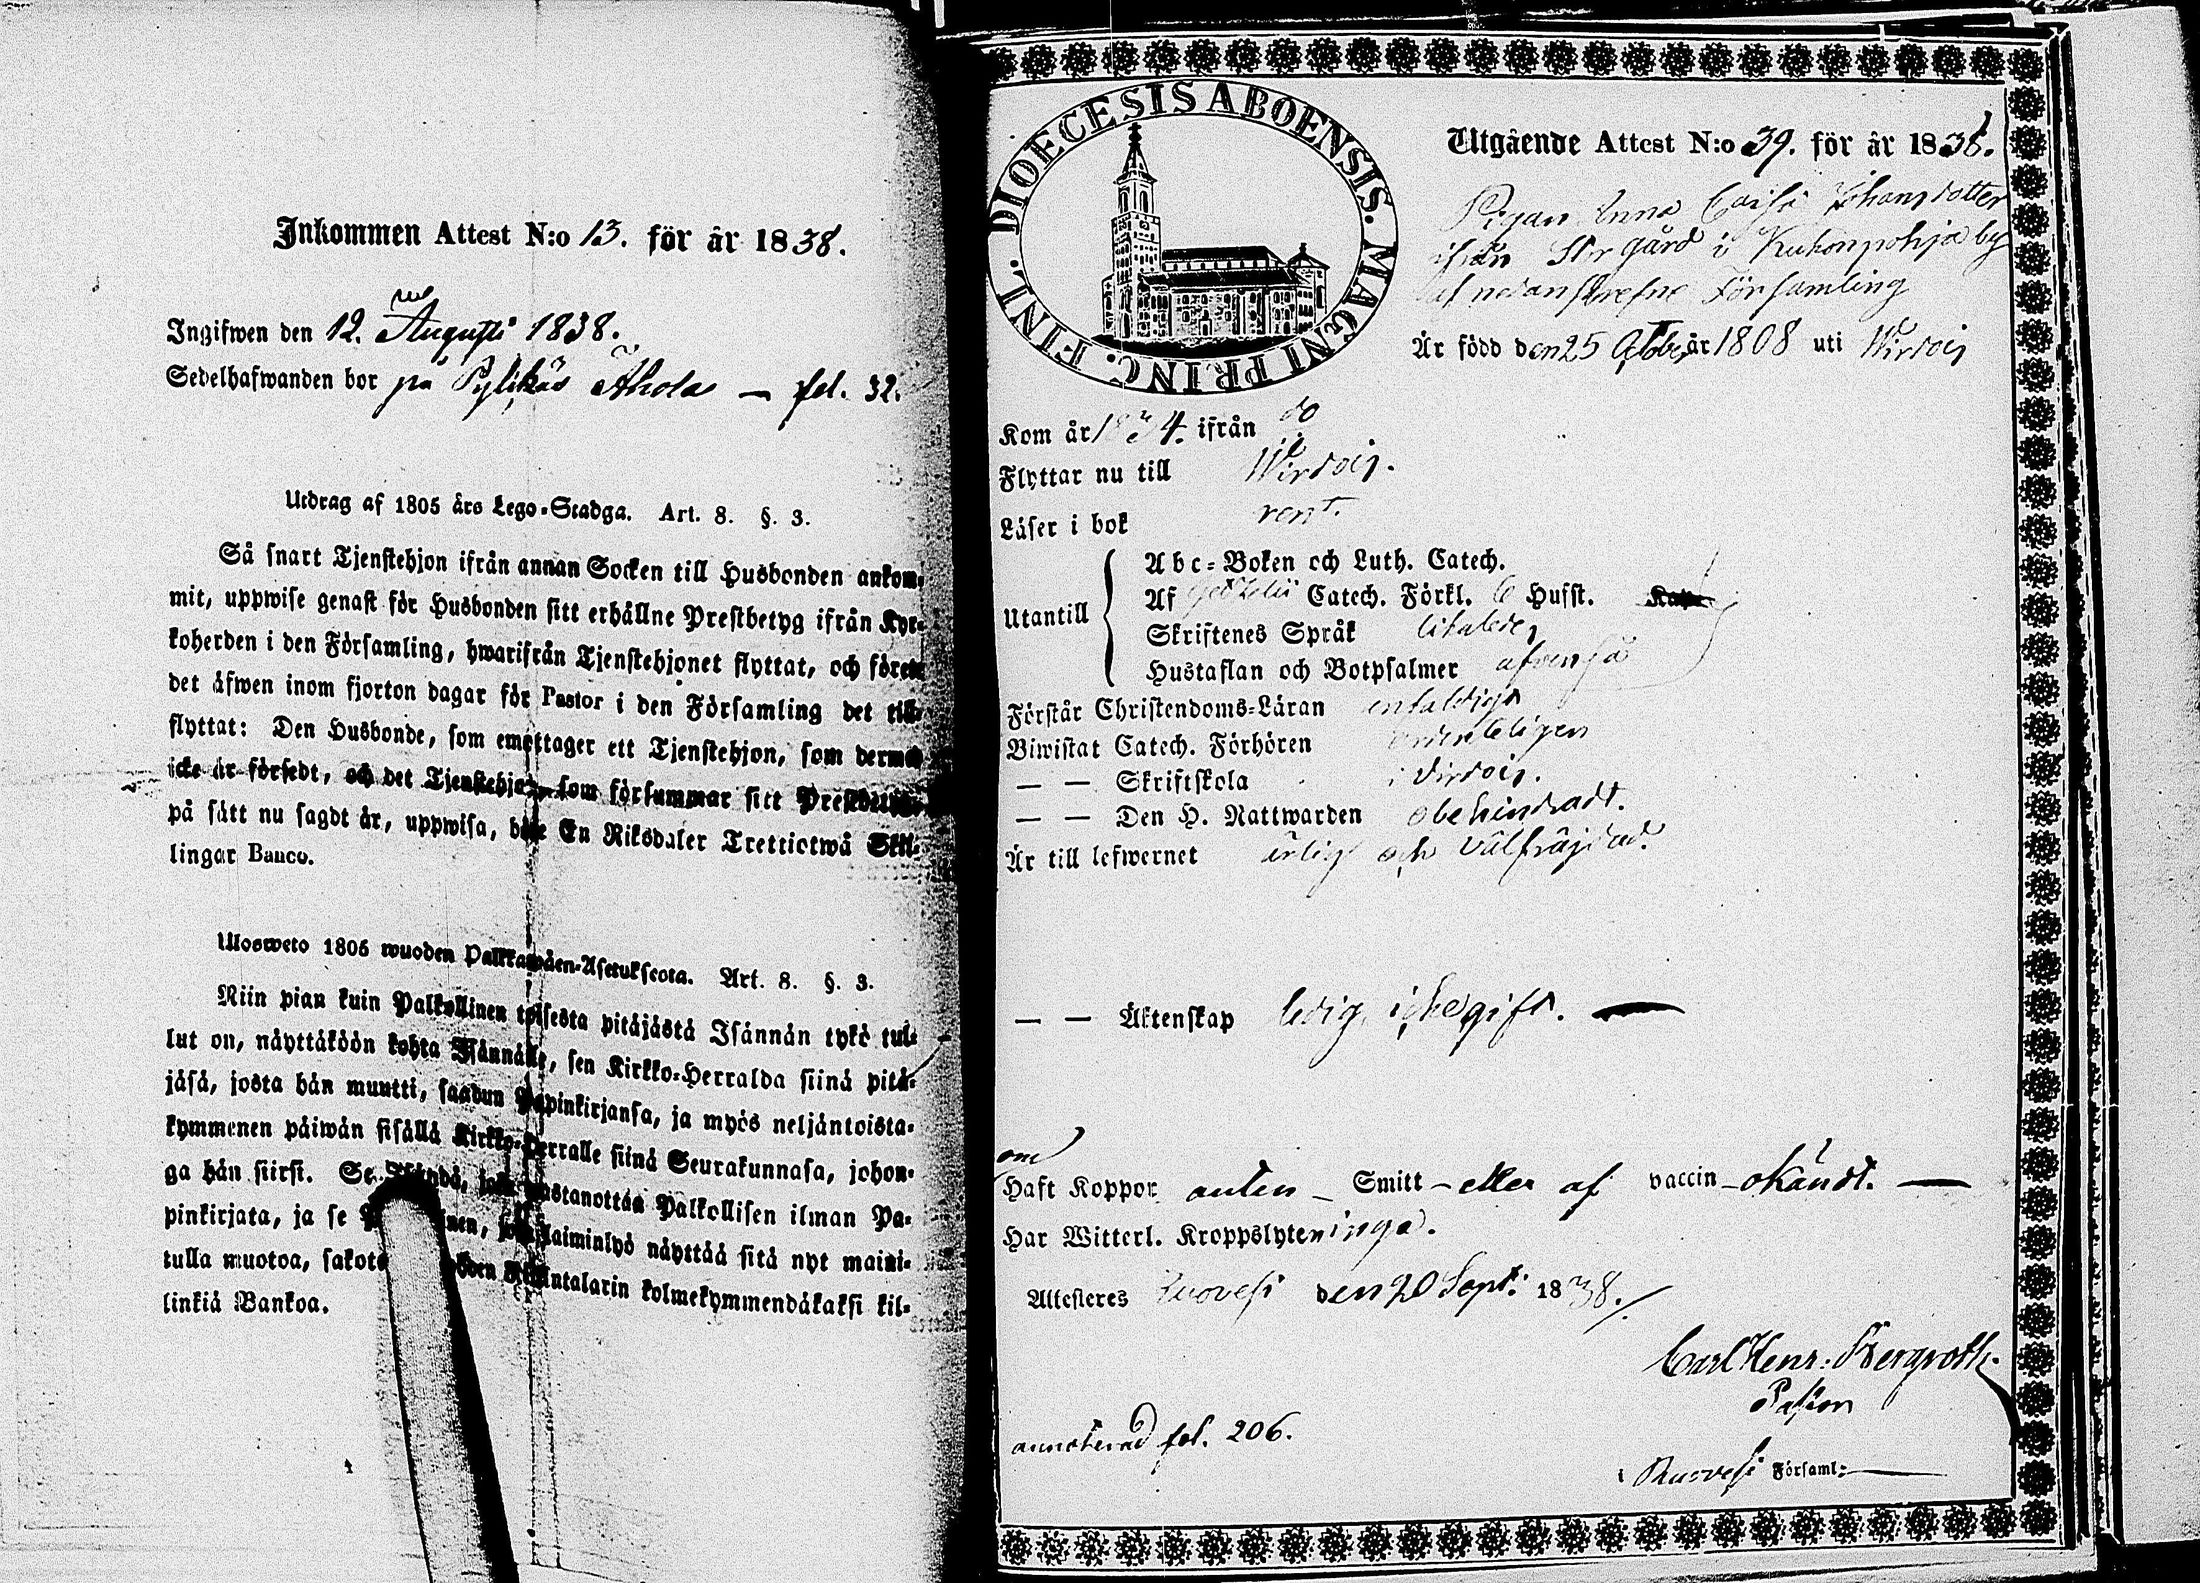 Inkommen Attest N:o 13. för år 1838.
Ingifwen den 12. Augusti 1838.
Sedelhafwanden bor på Pylkäs Ahola — fol. 32.
Utdrag af 1805 års Lego-Stadga. Art. 8. §. 3.
Så snart Tjenstehjon ifrån annan Socken till Husbonden ankom-
mit, uppwise genast för Husbonden sitt erhållne Prestbetyg ifrån Kyr-
koherden i den Församling, hwarifrån Tjenstehjonet flyttat, och förete
det äfwen inom fjorton dagar för Pastor i den Församling det till-
flyttat: Den Husbonde, som emottager ett Tjenstehjon, som dermed
icke är försedt, och det Tjenstehjon som försummar sitt Prestbetyg,
på sätt nu sagdt är, uppwisa, böte En Riksdaler Trettiotwå Skil-
lingar Banco.
Ulosweto 1805 wuoden Palkkawäen-Asetuksesta. Art. 8. §. 3.
Niin pian kuin Palkollinen toisesta pitäjästä Isännän tykö tul-
lut on, näyttäköön kohta Isännälle, sen Kirkko-Herralda siinä pitä-
jäsä, josta hän muutti, saadun Papinkirjansa, ja myös neljäntoista-
kymmenen päiwän sisällä Kirkko-Herralle siinä Seurakunnasa, johon-
ga hän siirsi. Se Isändä, joka wastanottaa Palkollisen ilman Pa-
pinkirjata, ja se joka laiminlyö näyttää sitä nyt maini-
tulla muotoa, sakote Riksintalarin kolmekymmendäkaksi kil-
linkiä Bankoa.
DIOECESIS ABOENSIS. MAGNI PRINC. FINL.
Utgående Attest N:o 39. för år 1838.
Pigan Anna Caisa Johansdotter
ifrån Storgård i Kukonpohja by
af nedanskrefne Församling
Är född den 25 October år 1808 uti Wirdois
Kom år 1834. ifrån do
Flyttar nu till Wirdois.
Läser i bok rent.
Utantill
Abc-Boken och Luth. Catech.
Af Gezelii Catech. Förkl. Husst.
Skriftenes Språk
Hustaflan och Botpsalmer
Förstår Christendoms-Läran enfaldigt
Biwistat Catech. Förhören ordenteligen
— — Skriftskola i Virdois.
— — Den H. Nattwarden obehindradt.
Är till lefwernet ärlig och välfräjdad.
— — Äktenskap ledig, icke gift. —
om
Haft Koppor antin — Smitt — eller af vaccin — okändt. —
Har Witterl. Kroppslyte ninga.
Attesteres Ruovesi den 20 Sept: 1838.
Carl Henr: Bergroth.
Pastor
annoterad fol. 206.
i Ruovesi Församl: